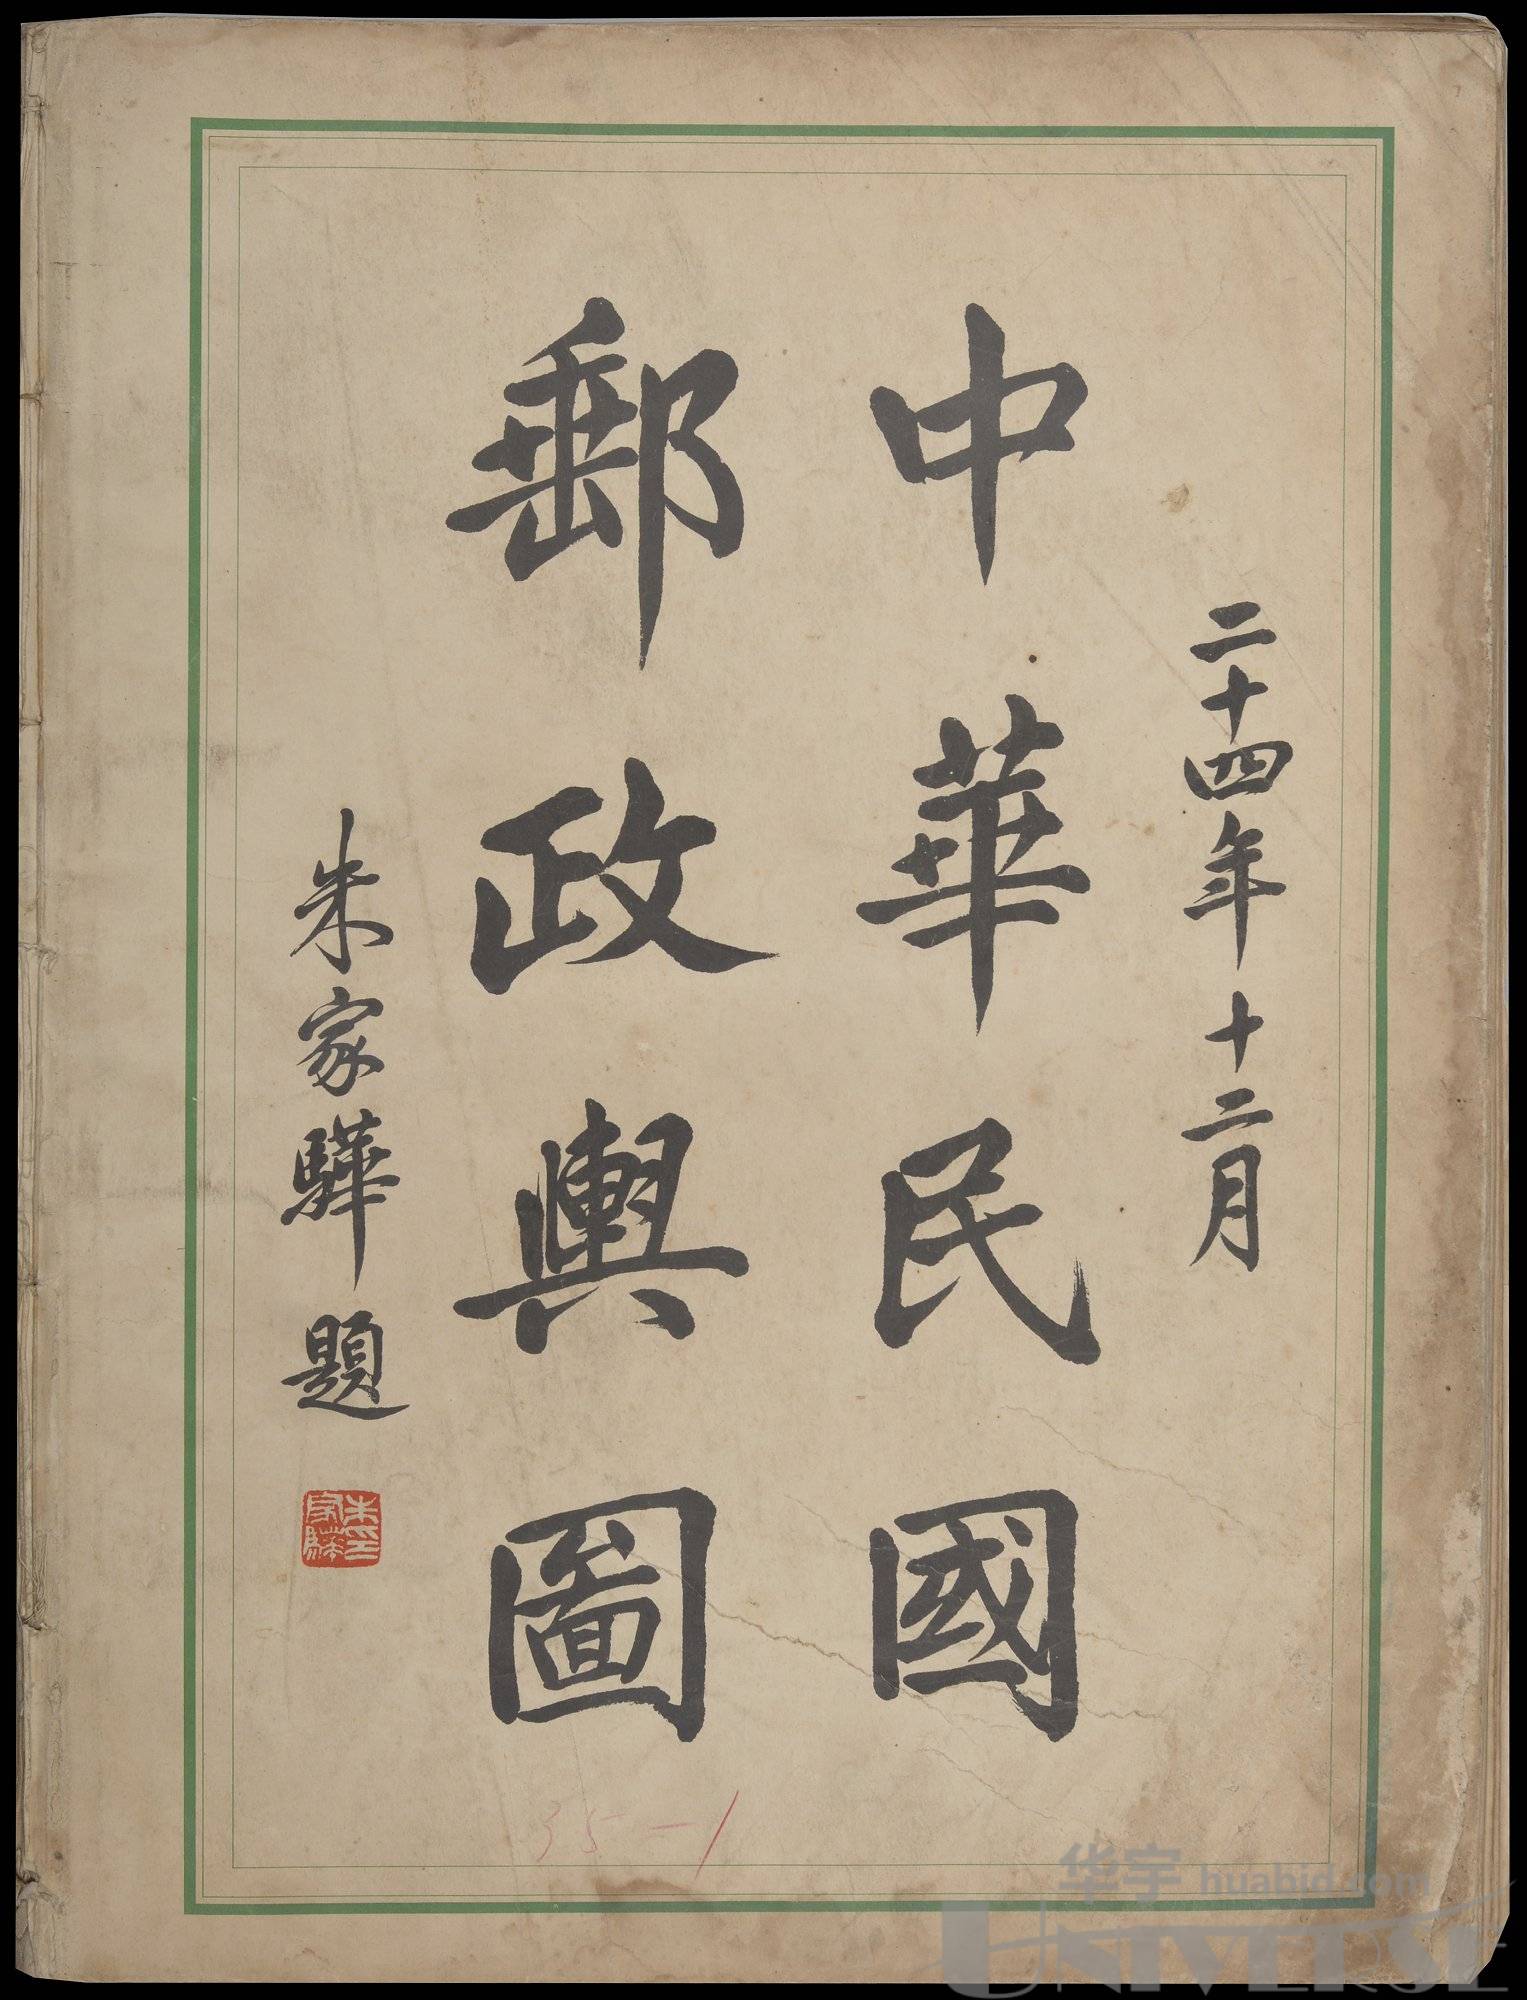 二十四年十二月
中華民國
郵政輿圖
朱家驊題
朱家驊印
35-1
华宇 huabid.com
UNIVERSE